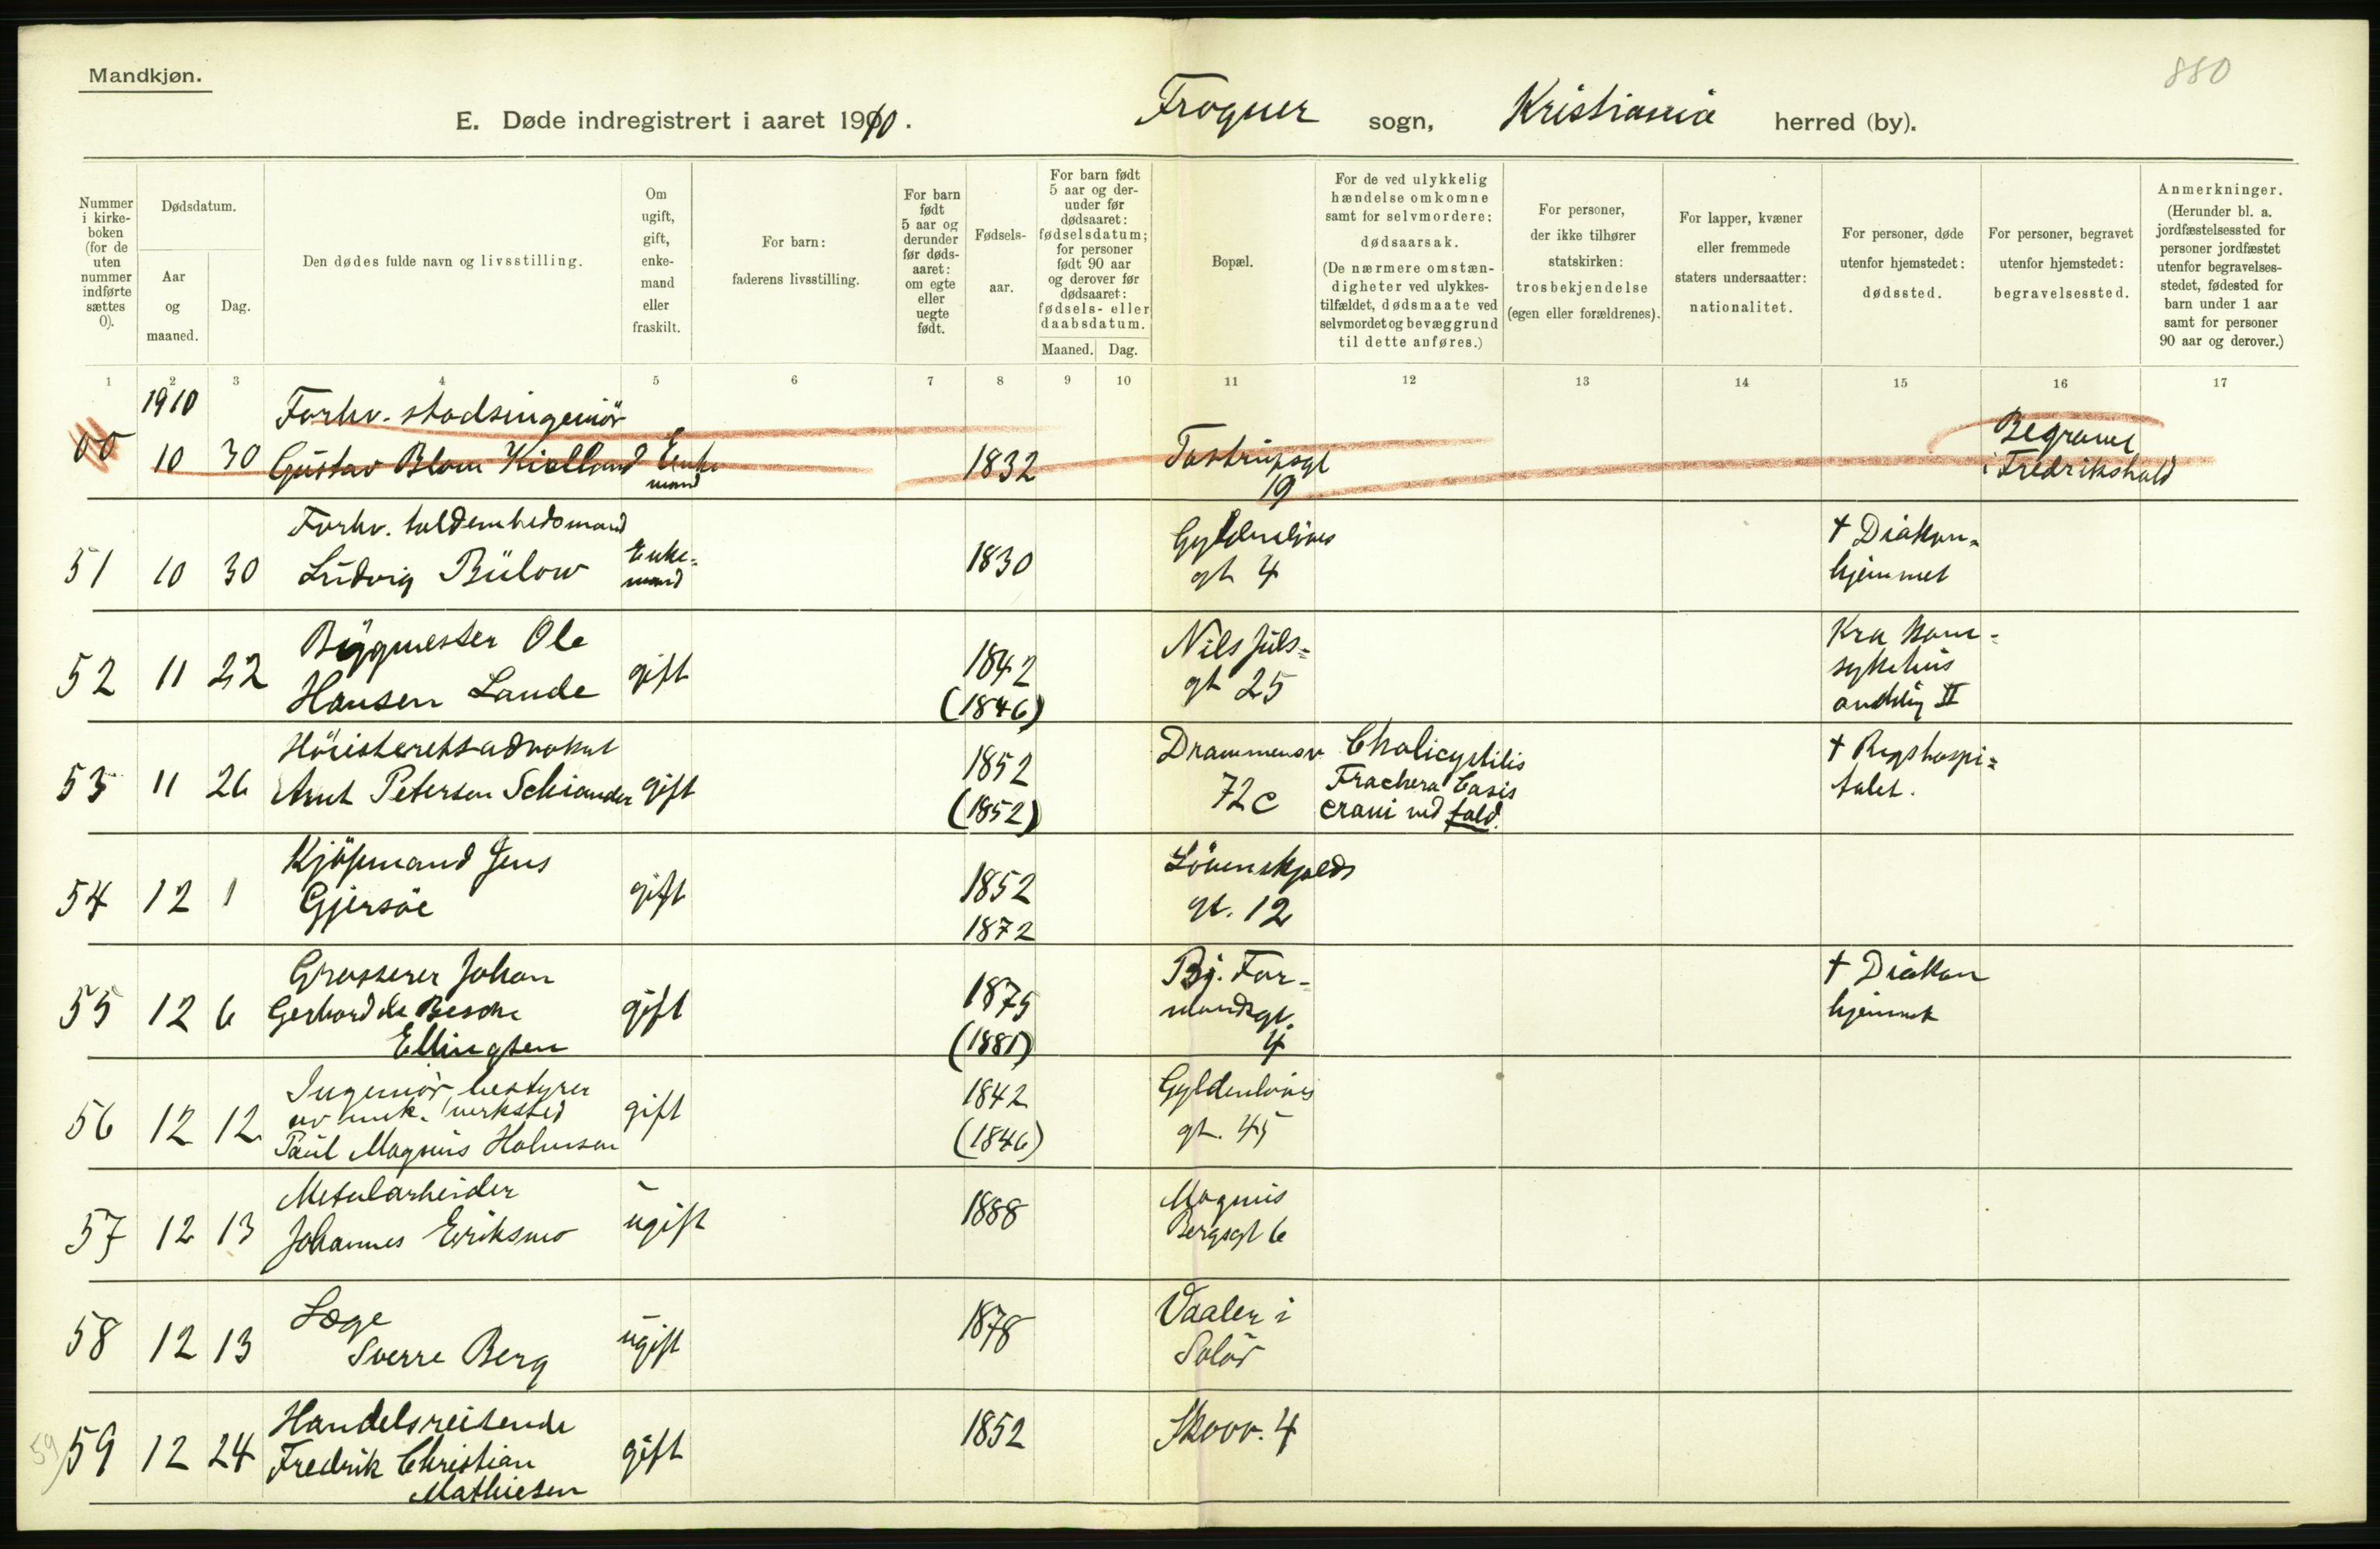 Mandkjøn.
880
E. Døde indregistrert i aaret 1910.
Frogner sogn, Kristiania herred (by).
Nummer i kirke- boken (for de uten nummer indførte sættes 0).
Dødsdatum.
Aar og maaned.
Dag.
Den dødes fulde navn og livsstilling.
Om ugift, gift, enke- mand eller fraskilt.
For barn: faderens livsstilling.
For barn født 5 aar og derunder før døds- aaret: om egte eller uegte født.
Fødsels- aar.
For barn født 5 aar og der- under før dødsaaret: fødselsdatum; for personer født 90 aar og derover før dødsaaret: fødsels- eller daabsdatum.
Maaned. Dag.
Bopæl.
For de ved ulykkelig hændelse omkomne samt for selvmordere: dødsaarsak. (De nærmere omstæn- digheter ved ulykkes- tilfældet, dødsmaate ved selvmordet og bevæggrund til dette anføres.)
For personer, der ikke tilhører statskirken: trosbekjendelse (egen eller forældrenes).
For lapper, kvæner eller fremmede staters undersaatter: nationalitet.
For personer, døde utenfor hjemstedet: dødssted.
For personer, begravet utenfor hjemstedet: begravelsessted.
Anmerkninger. (Herunder bl. a. jordfæstelsessted for personer jordfæstet utenfor begravelses- stedet, fødested for barn under 1 aar samt for personer 90 aar og derover.)
1 2 3 4 5 6 7 8 9 10 11 12 13 14 15 16 17
1910
Forhv. stadsingeniör
10 30 Gustav Blom Kielland Enke mand 1832 Tostrupsgt 19 Begravet i Fredrikshald
Forhv. toldembedsmand
51 10 30 Ludvig Bülow Enke= mand 1830 Gyldenlöves gt 4 † Diakon= hjemmet
Bygmester Ole
52 11 22 Hansen Lande gift 1842 (1846) Nils Juls= gt 25 Kra Kom= sykehus avdelig II
Höiesteretsadvokat
53 11 26 Arnt Peterson Schiander gift 1852 (1852) Drammensv 72c Cholicystitis Frachera basis crani ved fald. † Rigshospi= talet.
Kjöpmand Jens
54 12 1 Gjersöe gift 1852 1872 Lövenskjolds gt. 12
Grosserer Johan
55 12 6 Gerhard de Besche gift 1875 (1881) Bj. Far- mandsgt. 4 † Diakon hjemmet
Ellingsen
Ingeniör, bestyrer
av mek. verksted
56 12 12 Paul Magnus Halvorsen gift 1842 (1846) Gyldenlöves gt. 45
Metalarbeider
57 12 13 Johannes Eriksmo ugift 1888 Magnus Bergsgt 6
Læge
58 12 13 Sverre Berg ugift 1878 Vaaler i Solör
Handelsreisende
59 59 12 24 Fredrik Christian gift 1852 Skovv. 4
Mathiesen